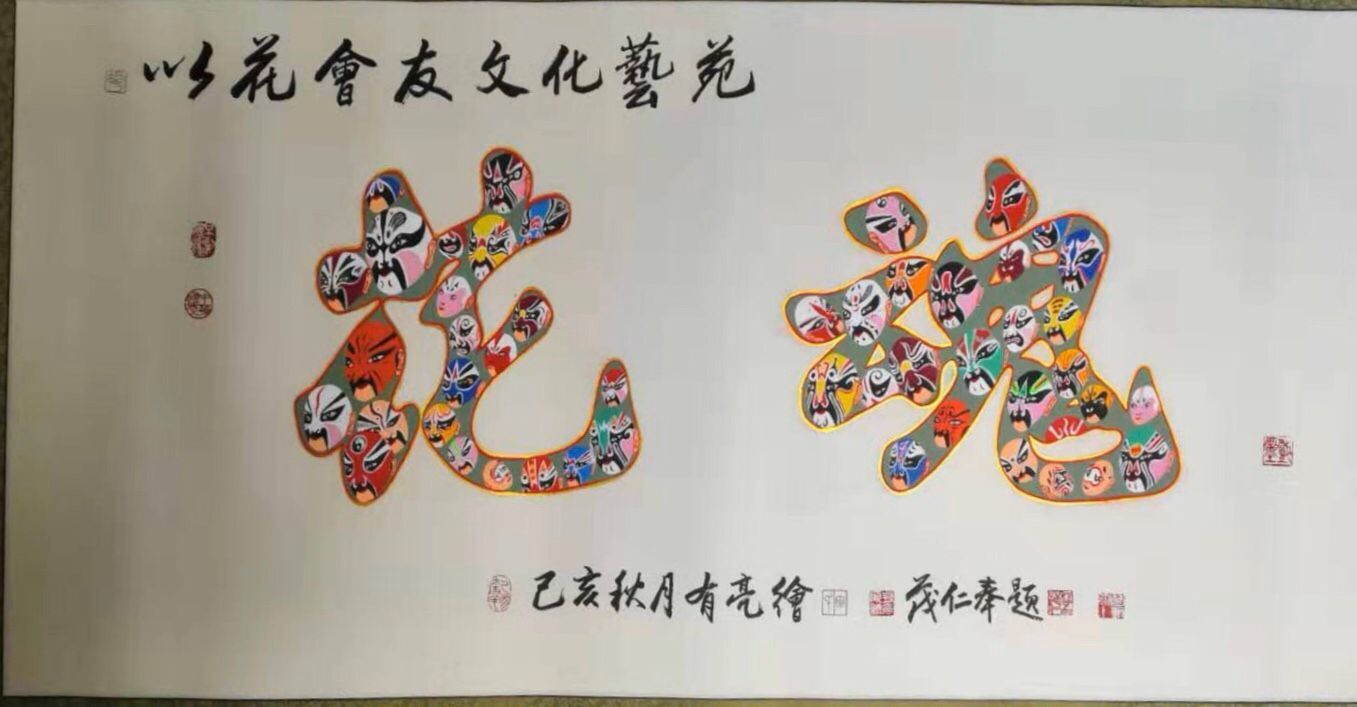 以花會友文化藝苑
花魂
己亥秋月有亮繪 茂仁奉題